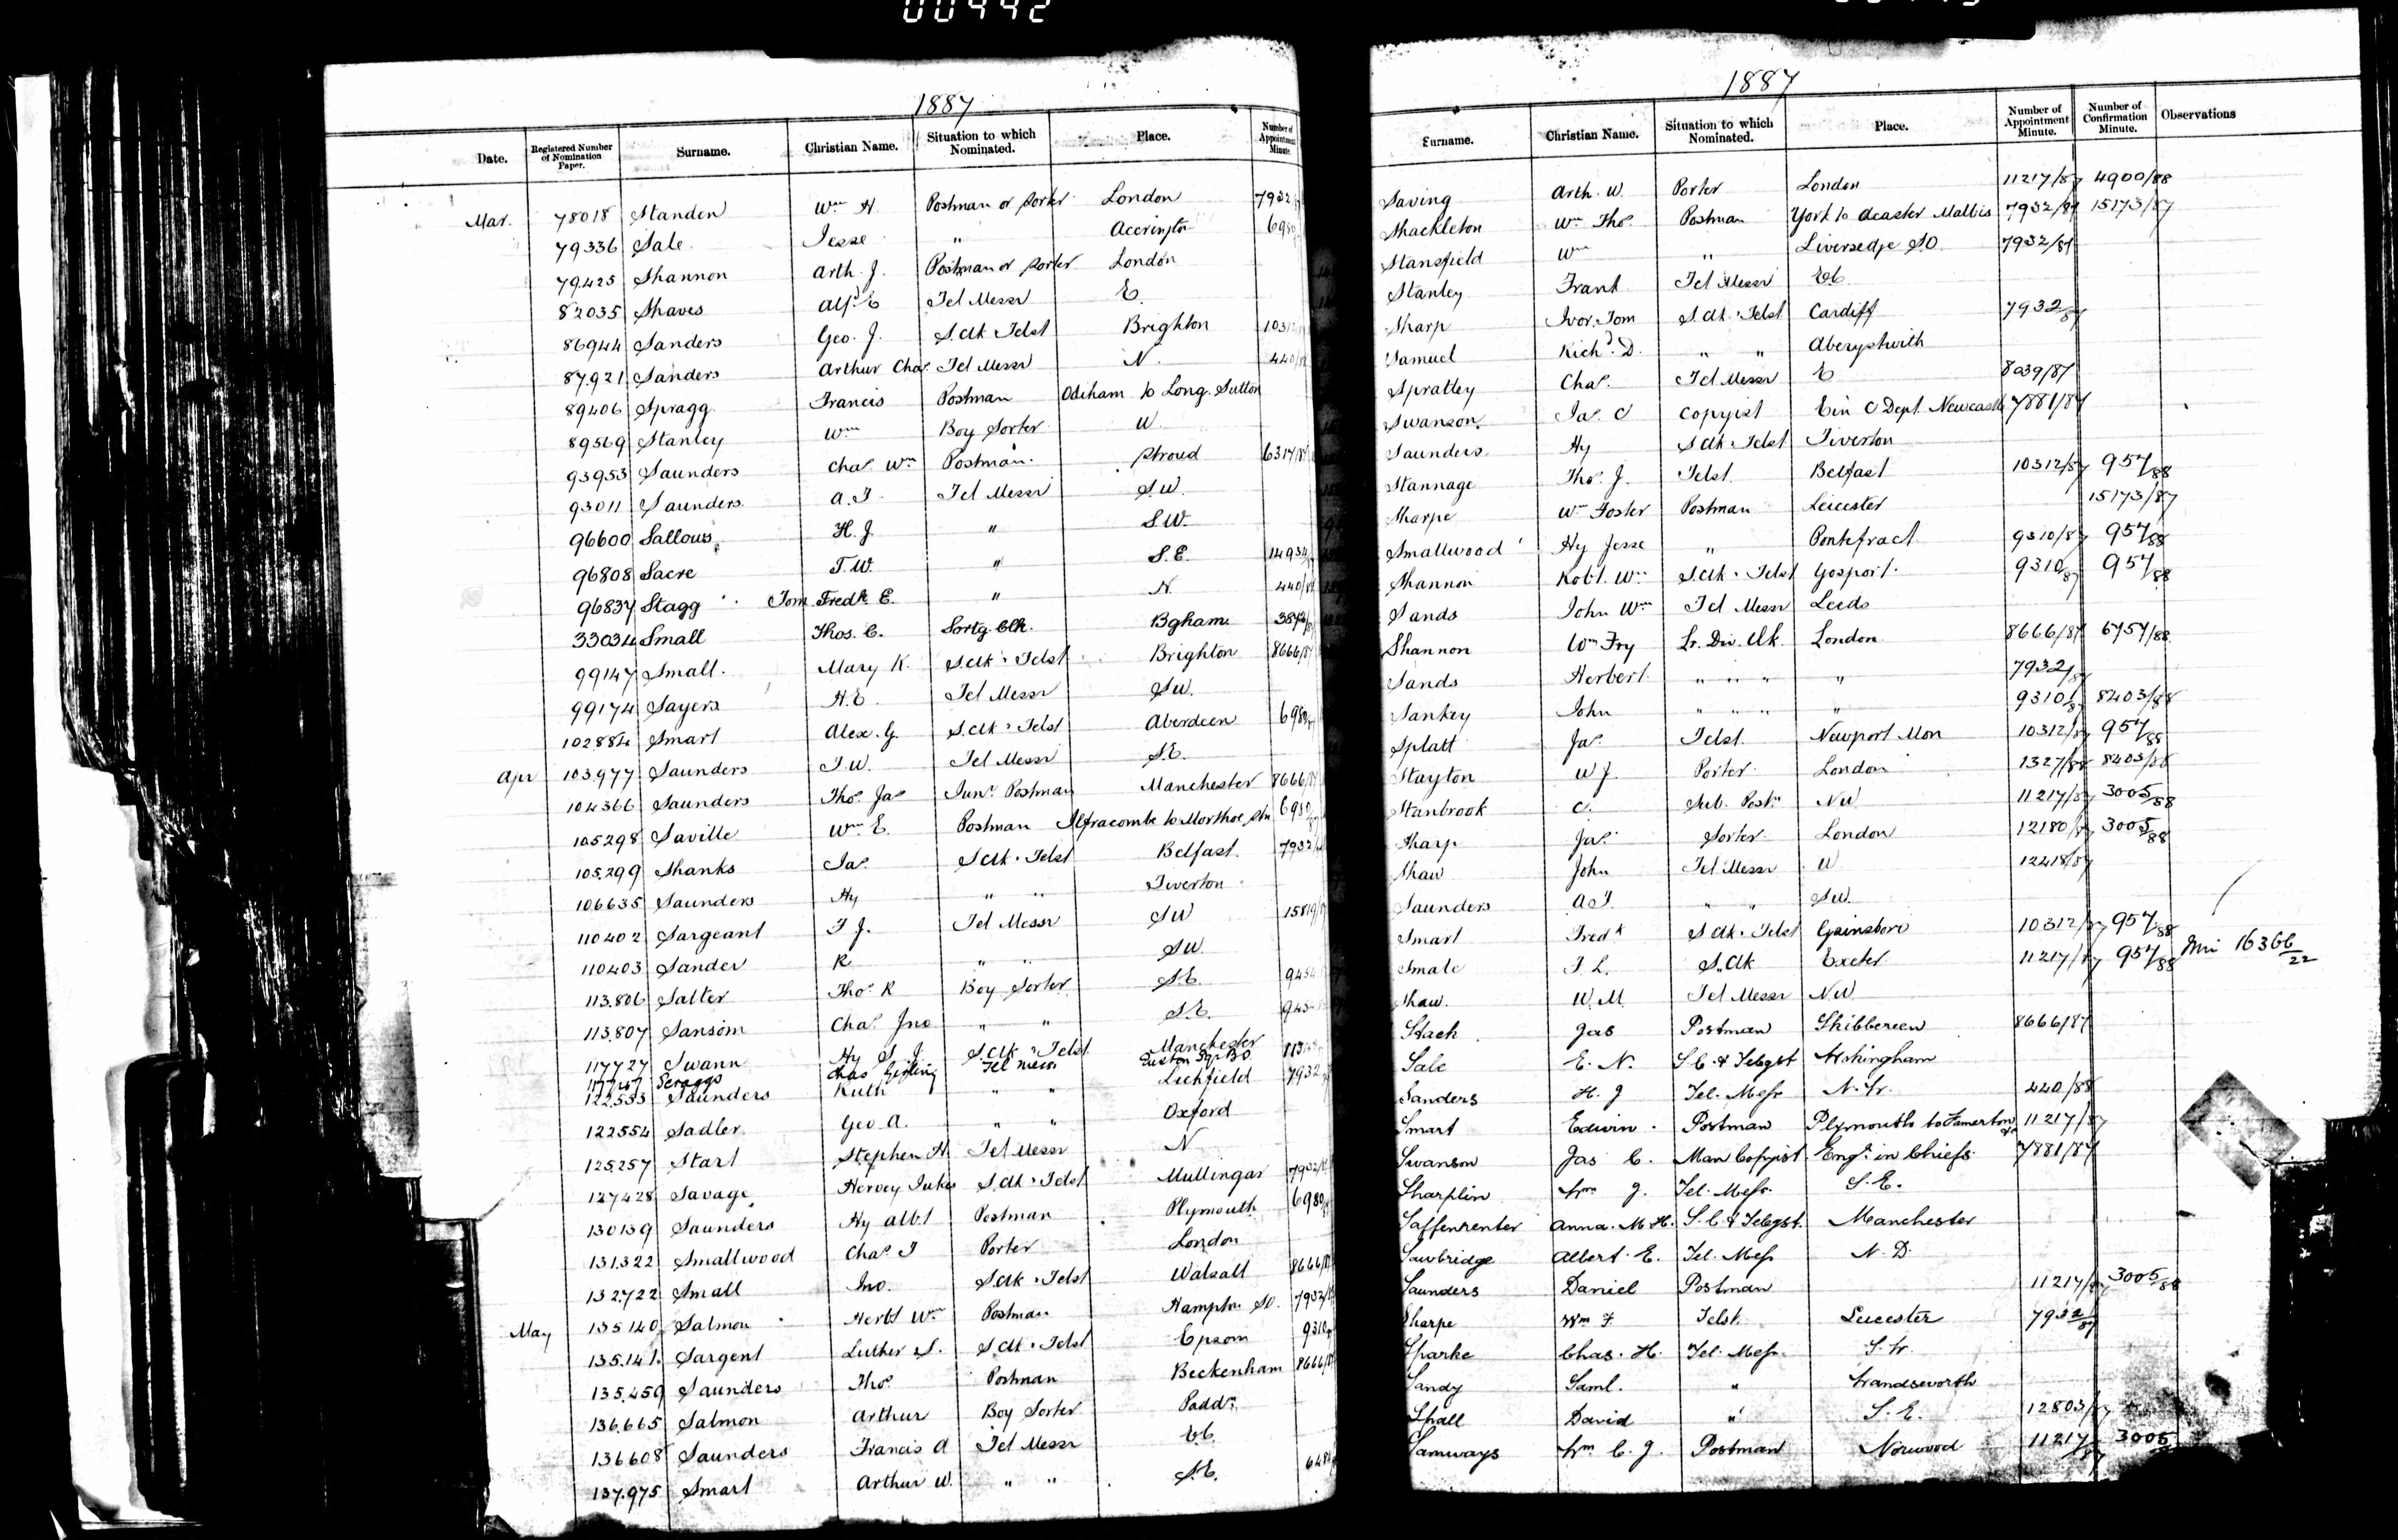 00442
1887
Date. Registered Number of Nomination Paper. Surname. Christian Name. Situation to which Nominated. Place. Number of Appointment Minute.
Mar. 78018 Standen Wm H Postman or Porter London 7932
79336 Sale Jesse " Accrington 6980
79425 Shannon Arth. J. Postman or Porter London
82035 Shaves Alfd E Tel Messr E.
86944 Sanders Geo. J. S. Clk & Telst Brighton 1031
87921 Sanders Arthur Chas. Tel Messr N. 440/
89406 Spragg Francis Postman Odiham to Long Sutton
89569 Stanley Wm Boy Sorter W.
93953 Saunders Chas. Wm Postman Stroud 6317/87
93011 Saunders A. T. Tel Messr S.W.
96600 Sallows H. J. " S.W.
96808 Sacre T. W. " S.E. 14934
96837 Stagg Tom Fredk E. " N 440/
33034 Small Thos. C. Sortg. Clk. Bgham
99147 Small. Mary K. S. Clk & Telst Brighton 8666/87
99174 Sayers H. E. Tel Messr SW.
102884 Smart Alex. G. S. Clk & Telst Aberdeen 6980
Apr 103977 Saunders T. W. Tel Messr S.E.
104366 Saunders Thos. Jas Junr. Postman Manchester 8666/87
105298 Saville Wm E. Postman Ilfracombe to Morthoe Stn 6980
105299 Shanks Jas. S Clk & Telst Belfast. 7932
106635 Saunders Hy " " Tiverton
110402 Sargeant T J. Tel Messr SW 15819/
110403 Sander R " " SW.
113806 Salter Thos. R Boy Sorter S.E. 9454
113807 Sansom Chas. Jno " " S.E. 945
117727 Swann Hy S. J. S. Clk & Telst Manchester
Scraggs Chas Girling Tel Messr Euston Sqr B.O.
122553 Saunders Ruth " " Lichfield 7932
122554 Sadler Geo A. " " Oxford
125257 Start Stephen H. Tel Messr N
127428 Savage Hervey Jukes S. Clk & Telst Mullingar 7932/
130139 Saunders Hy Albt Postman Plymouth 6980
131322 Smallwood Chas. T Porter London
132722 Small Jno. S. Clk & Telst Walsall 8666/
May 135140 Salmon Herbt Wm Postman Hampton SO. 7932/
135141 Sargent Luther S. S. Clk & Telst Epsom 9310
135459 Saunders Thos. Postman Beckenham 8666/
136665 Salmon Arthur Boy Sorter Paddn.
136608 Saunders Francis A Tel Messr EC.
137975 Smart Arthur W. " " S.E.
1887
Surname. Christian Name. Situation to which Nominated. Place. Number of Appointment Minute. Number of Confirmation Minute. Observations
Saving Arth. W. Porter London 11217/87 4900/88
Shackleton Wm Thos. Postman York to Acaster Malbis 7932/87 15173/87
Stansfield Wm " Liversedge S.O. 7932/87
Stanley Frank Tel Messr EC
Sharp Ivor. Tom S. Clk & Telst Cardiff 7932/87
Samuel Richd. D. " " Aberystwith
Spratley Chas. Tel Messr E 8039/87
Swanson. Jas. C Copyist E in C Dept. Newcastle 7881/87
Saunders Hy S Clk & Telst Tiverton
Stannage Thos. J. Telst Belfast 10312/87 957/88
Sharpe Wm Foster Postman Leicester 15173/87
Smallwood Hy Jesse " Pontefract 9310/87 957/88
Shannon Robt. Wm S. Clk & Telst Gosport. 9310/87 957/88
Sands John Wm Tel Messr Leeds
Shannon Wm Fry Lr. Div. Clk London 8666/87 6757/88
Sands Herbert " " " " 7932/87
Sankey John " " " " 9310/87 8403/88
Splatt Jas. Telst. Newport Mon 10312/87 957/88
Stayton W J. Porter London 1327/88 8403/88
Stanbrook C. Sub. Postn NW 11217/87 3005/88
Sharp Jas. Sorter London 12180/87 3005/88
Shaw John Tel Messr W 12418/87
Saunders A T. " " SW.
Smart Fredk S Clk & Telst Gainsboro 10312/87 957/88
Smale T. L. S. Clk Exeter 11217/87 957/88 Min 16366/22
Shaw. W. M. Tel Messr NW
Stack Jas Postman Skibbereen 8666/87
Sale E. N. S. C. & Telegst Wokingham
Sanders H. J Tel. Messr N. W. 440/88
Smart Edwin Postman Plymouth to Tamerton &c 11217/87
Swanson Jas C. Man Copyist Engr. in Chiefs 7881/87
Sharplin Wm J. Tel. Messr. S. E.
Saffenrenter Anna. M. H. S. C. & Telegst. Manchester
Sawbridge Albert E. Tel. Messr N. D.
Saunders Daniel Postman 11217/87 3005/88
Sharpe Wm F. Telst. Leicester 7932/87
Sparke Chas. H. Tel. Messr. S. W.
Sandy Saml. " Wandsworth
Spall David " S. E. 12803/87
Samways Wm C. J. Postman Norwood 11217/87 3005